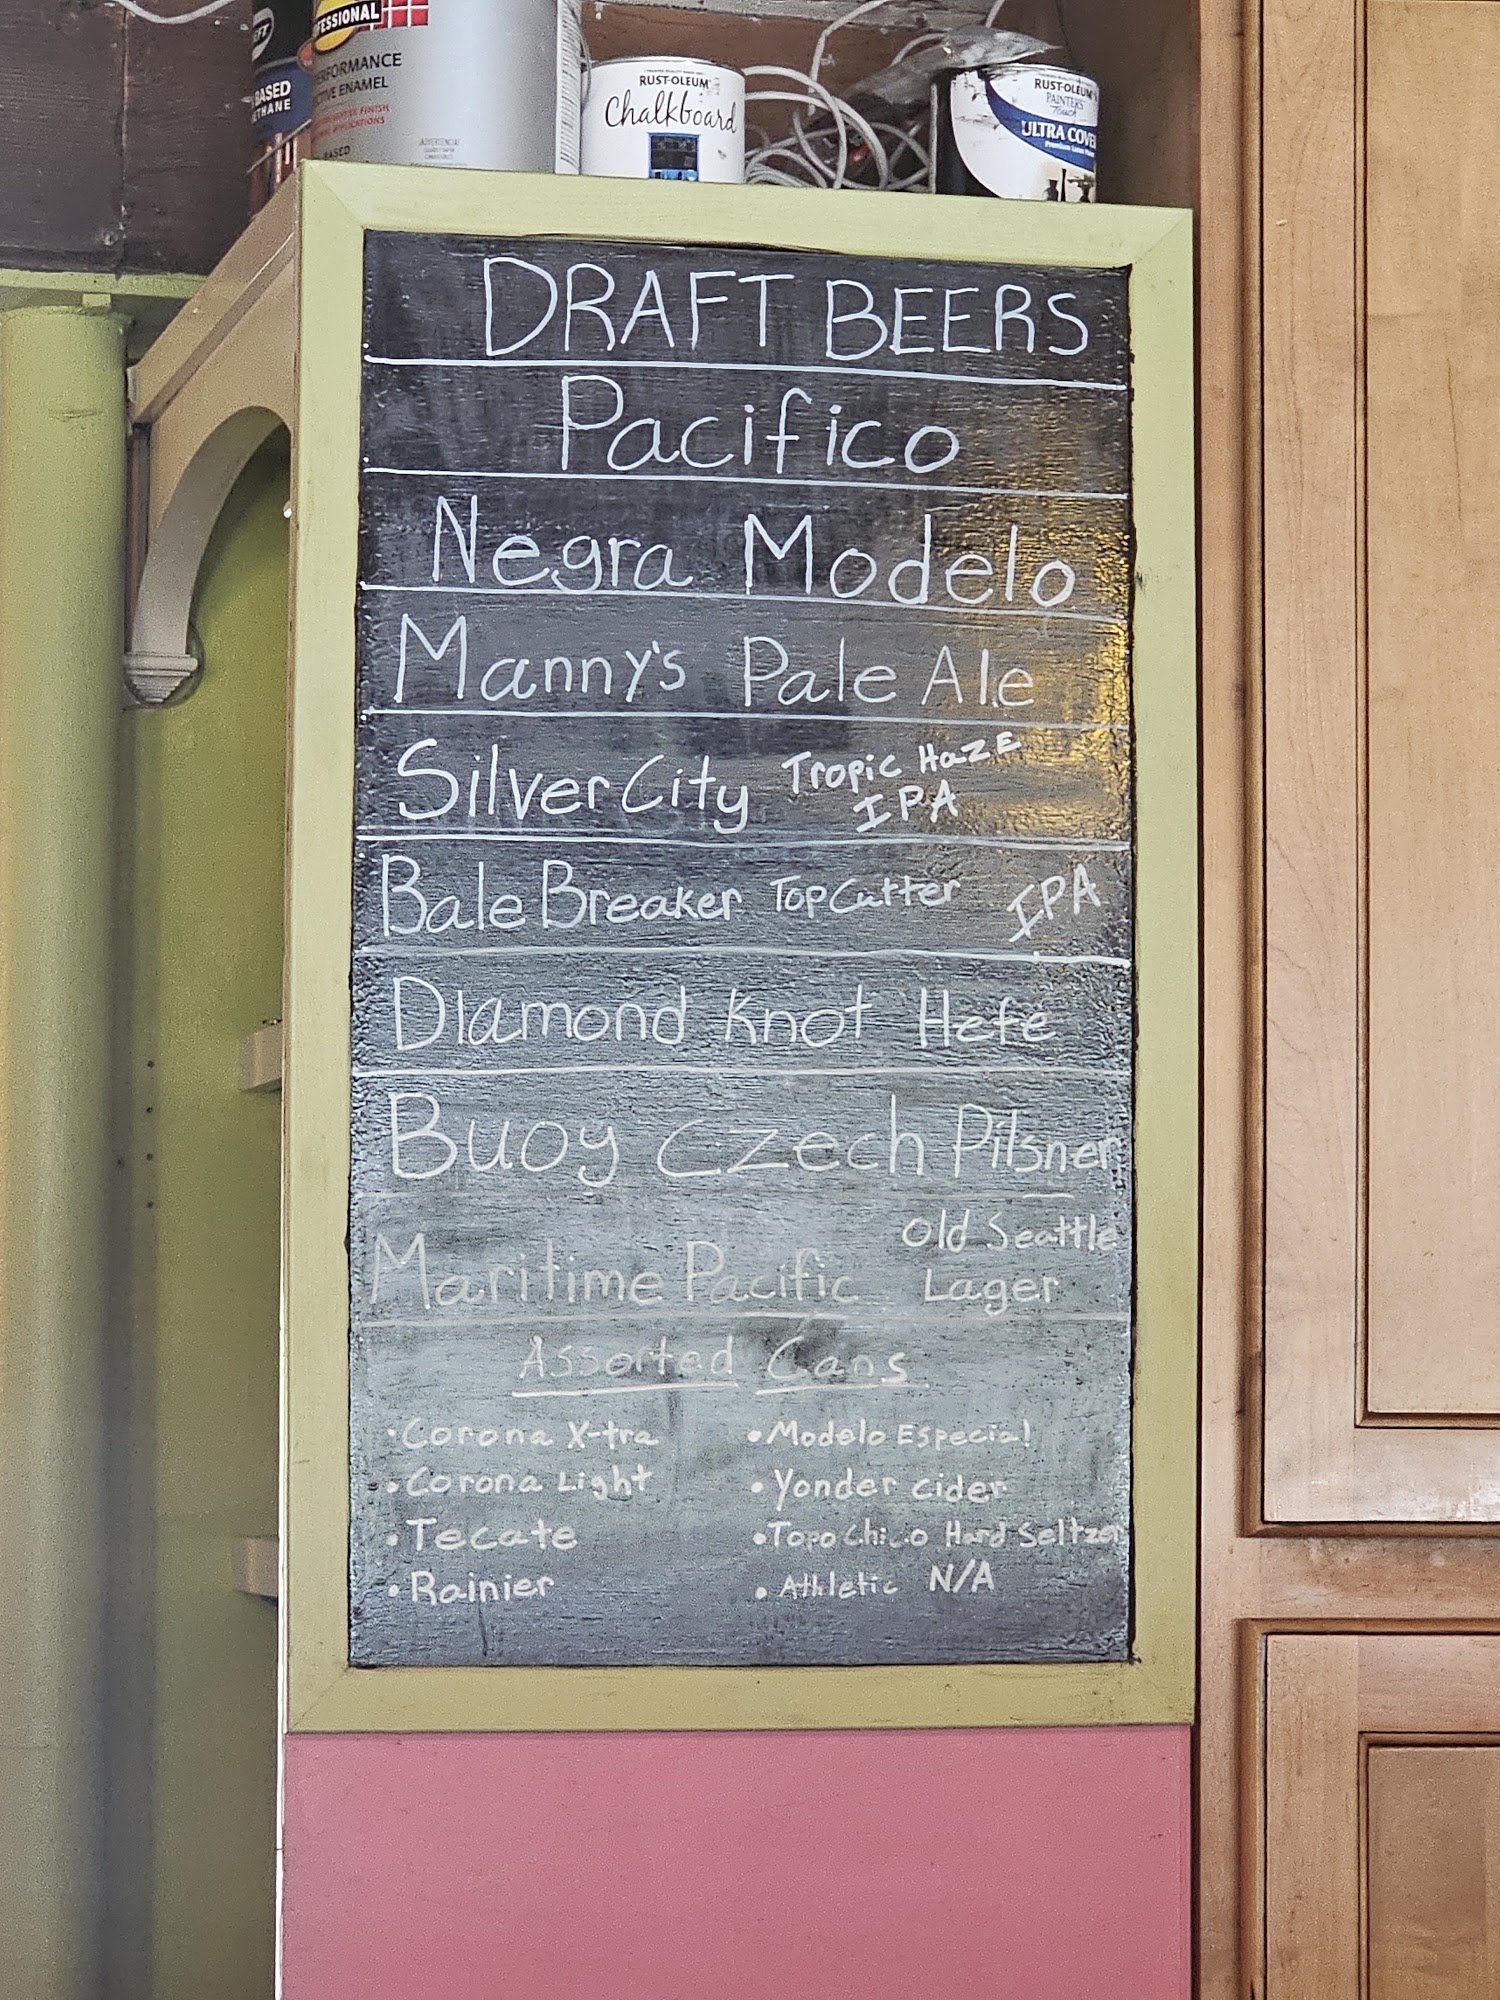 EFT
BASED
ETHANE
FESSIONAL
PERFORMANCE
CTIVE ENAMEL
BASED
RUST-OLEUM
Chalkboard
RUST-OLEUM
PAINTER'S
Touch
ULTRA COVE
Premium Latex Paint
DRAFT BEERS
Pacifico
Negra Modelo
Manny's Pale Ale
Silver City Tropic Haze
IPA
Bale Breaker TopCutter IPA
Diamond Knot Hefe
Buoy Czech Pilsner
Maritime Pacific Old Seattle
Lager
Assorted Cans
• Corona X-tra
• Corona Light
• Tecate
• Rainier
• Modelo Especial
• Yonder Cider
• Topo Chico Hard Seltzer
• Athletic N/A